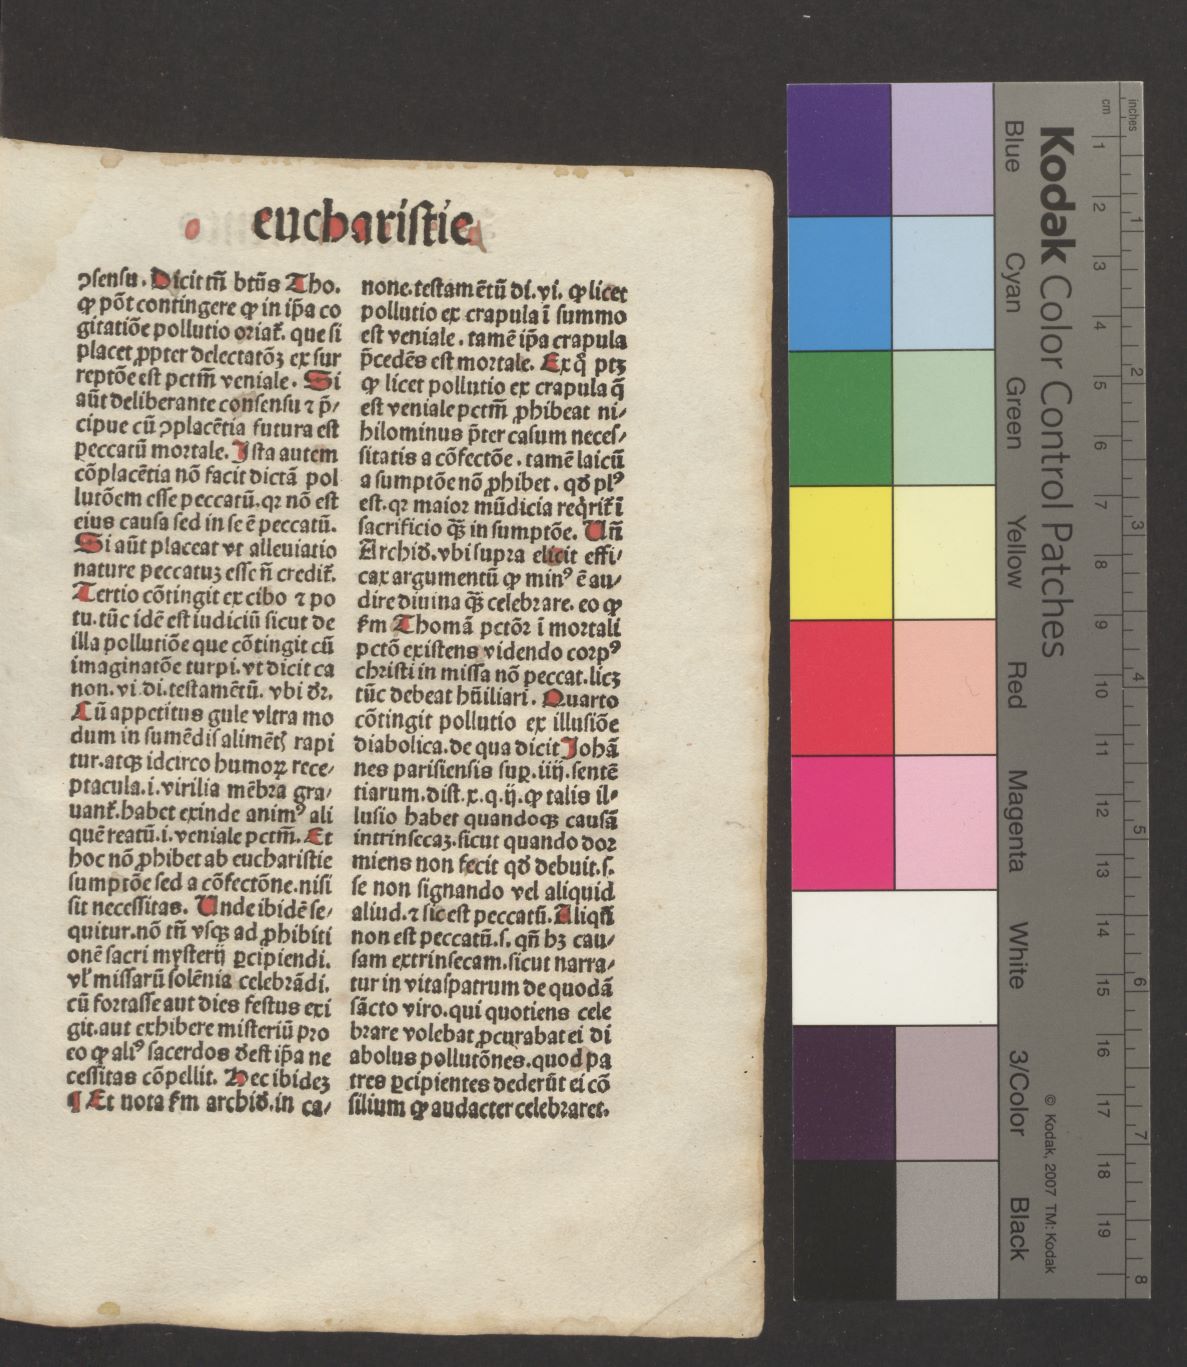 eucharistie
ↄsensu. Dicit tñ btũs Tho.
ꝙ põt contingere ꝙ in ip̃a co
gitatiõe pollutio oriat᷑. que si
placet ꝓpter delectatõꝫ ex sur
reptõe est pctm̃ veniale. Si
aũt deliberante consensu ⁊ p̃/
cipue cũ ↄplacẽtia futura est
peccatũ mortale. Ista autem
cõplacẽtia nõ facit dictã pol
lutõem esse peccatũ. qꝛ nõ est
eius causa sed in se ẽ peccatũ.
Si aũt placeat vt alleuiatio
nature peccatuꝫ esse ñ credit᷑.
Tertio cõtingit ex cibo ⁊ po
tu. tũc idẽ est iudiciũ sicut de
illa pollutiõe que cõtingit cũ
imaginatõe turpi. vt dicit ca
non. vi. di. testamẽtũ. vbi dꝛ.
Cũ appetitus gule vltra mo
dum in sumẽdis alimẽtꝭ rapi
tur. atqꝫ idcirco humoꝝ rece/
ptacula. i. virilia mẽbra gra/
uant᷑. habet exinde animꝰ ali
quẽ reatũ. i. veniale pctm̃. Et
hoc nõ ꝓhibet ab eucharistie
sumptõe sed a cõfectõne. nisi
sit necessitas. Unde ibidẽ se/
quitur. nõ tñ vsqꝫ ad ꝓhibiti
onẽ sacri mysterij ꝑcipiendi.
vl̕ missarũ solẽnia celebrãdi.
cũ fortasse aut dies festus exi
git. aut exhibere misteriũ pro
eo ꝙ aliꝰ sacerdos deest ip̃a ne
cessitas cõpellit. Hec ibideꝫ
¶ Et nota ẜm archid̕. in ca/
none. testamẽtũ di. vi. ꝙ licet
pollutio ex crapula ĩ summo
est veniale. tamẽ ip̃a crapula
p̃cedẽs est mortale. Ex q̊ ptꝫ
ꝙ licet pollutio ex crapula q̃
est veniale pctm̃ ꝓhibeat ni/
hilominus p̃ter casum neces/
sitatis a cõfectõe. tamẽ laicũ
a sumptõe nõ ꝓhibet. qd̕ plꝰ
est. qꝛ maior mũdicia reqͥrit᷑ ĩ
sacrificio qꝫ̃ in sumptõe. Uñ
Archid̕. vbi supra elicit effi/
cax argumentũ ꝙ minꝰ ẽ au/
dire diuina qꝫ̃ celebrare. eo ꝙ
ẜm Thomã pctõꝛ ĩ mortali
pctõ existens videndo corpꝰ
christi in missa nõ peccat. licꝫ
tũc debeat hũiliari. Quarto
cõtingit pollutio ex illusiõe
diabolica. de qua dicit Johã
nes parisiensis suꝑ. iiij. sentẽ
tiarum. dist. x. q. ij. ꝙ talis il/
lusio habet quandoqꝫ causã
intrinsecaꝫ. sicut quando dor
miens non fecit qd̕ debuit. s.
se non signando vel aliquid
aliud. ⁊ sic est peccatũ. Aliqñ
non est peccatũ. s. qñ hꝫ cau/
sam extrinsecam. sicut narra/
tur in vitaspatrum de quodã
sãcto viro. qui quotiens cele
brare volebat ꝓcurabat ei di
abolus pollutõnes. quod pa
tres ꝑcipientes dederũt ei cõ
silium ꝙ audacter celebraret.
Kodak Color Control Patches
Blue Cyan Green Yellow Red Magenta White 3/Color Black
© Kodak, 2007 TM: Kodak
cm 1 2 3 4 5 6 7 8 9 10 11 12 13 14 15 16 17 18 19
inches 1 2 3 4 5 6 7 8